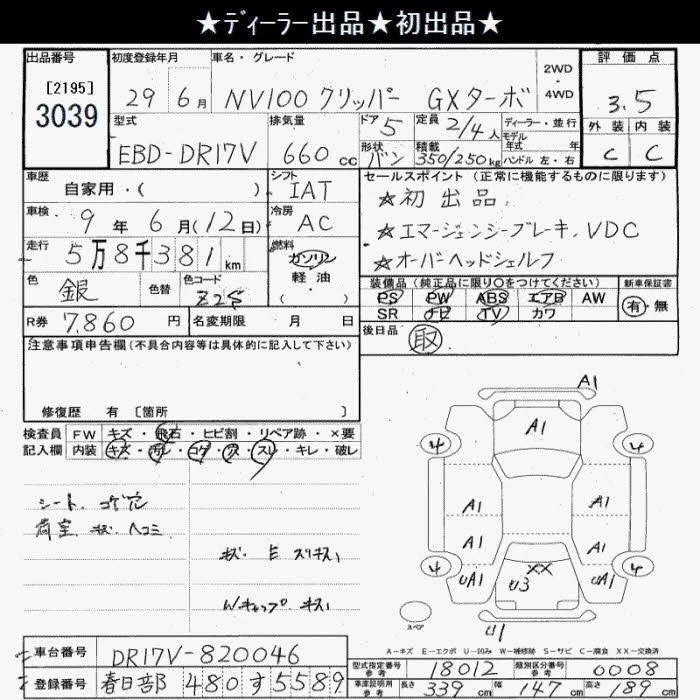 ★ディーラー出品★初出品★
出品番号 [2195] 3039
初度登録年月 29 6月
車名・グレード NV100 クリッパー GXターボ
2WD・4WD
評価点 3.5
外装 C 内装 C
型式 EBD-DR17V
排気量 660 cc
ドア 5 形状 バン
定員 2/4人 積載 350/250kg
ディーラー・並行
モデル年式 年
ハンドル 左・右
車歴 自家用・( )
シフト IAT
車検 9年6月(12日)
冷房 AC
走行 5万8千381km
燃料 ガソリン 軽・油 ( )
色 銀 色替 色コード Z2S
R券 7,860円 名変期限 月 日
セールスポイント (正常に機能するものに限ります)
★初出品
★エマージェンシーブレーキ、VDC
★オーバーヘッドシェルフ
装備品 (純正品に限り○をつけてください) 新車保証書
PS PW ABS エアB AW 有・無
SR ナビ TV カワ
後日品 取
注意事項申告欄 (不具合内容等は具体的に記入して下さい)
修復歴 有 [箇所 ]
検査員 FW キズ・飛石・ヒビ割・リペア跡・×要
記入欄 内装 キズ・汚レ・コゲ・穴・スレ・キレ・破レ
シート コゲ穴
荷室 キズ ヘコミ
W キャップ キズ
A1
A1
4 4
A1 A1
A1 A1
4 4
UA1 U3 XX UA1
U1
スペア
A-キズ E-エクボ U-凹み W-補修跡 S-サビ C-腐食 XX-交換済
車台番号 DR17V-820046
型式指定番号 参考 18012 類別区分番号 参考 0008
登録番号 春日部 480 す 5589
車庫証明用 参考 長さ 339cm 幅 147cm 高さ 189cm